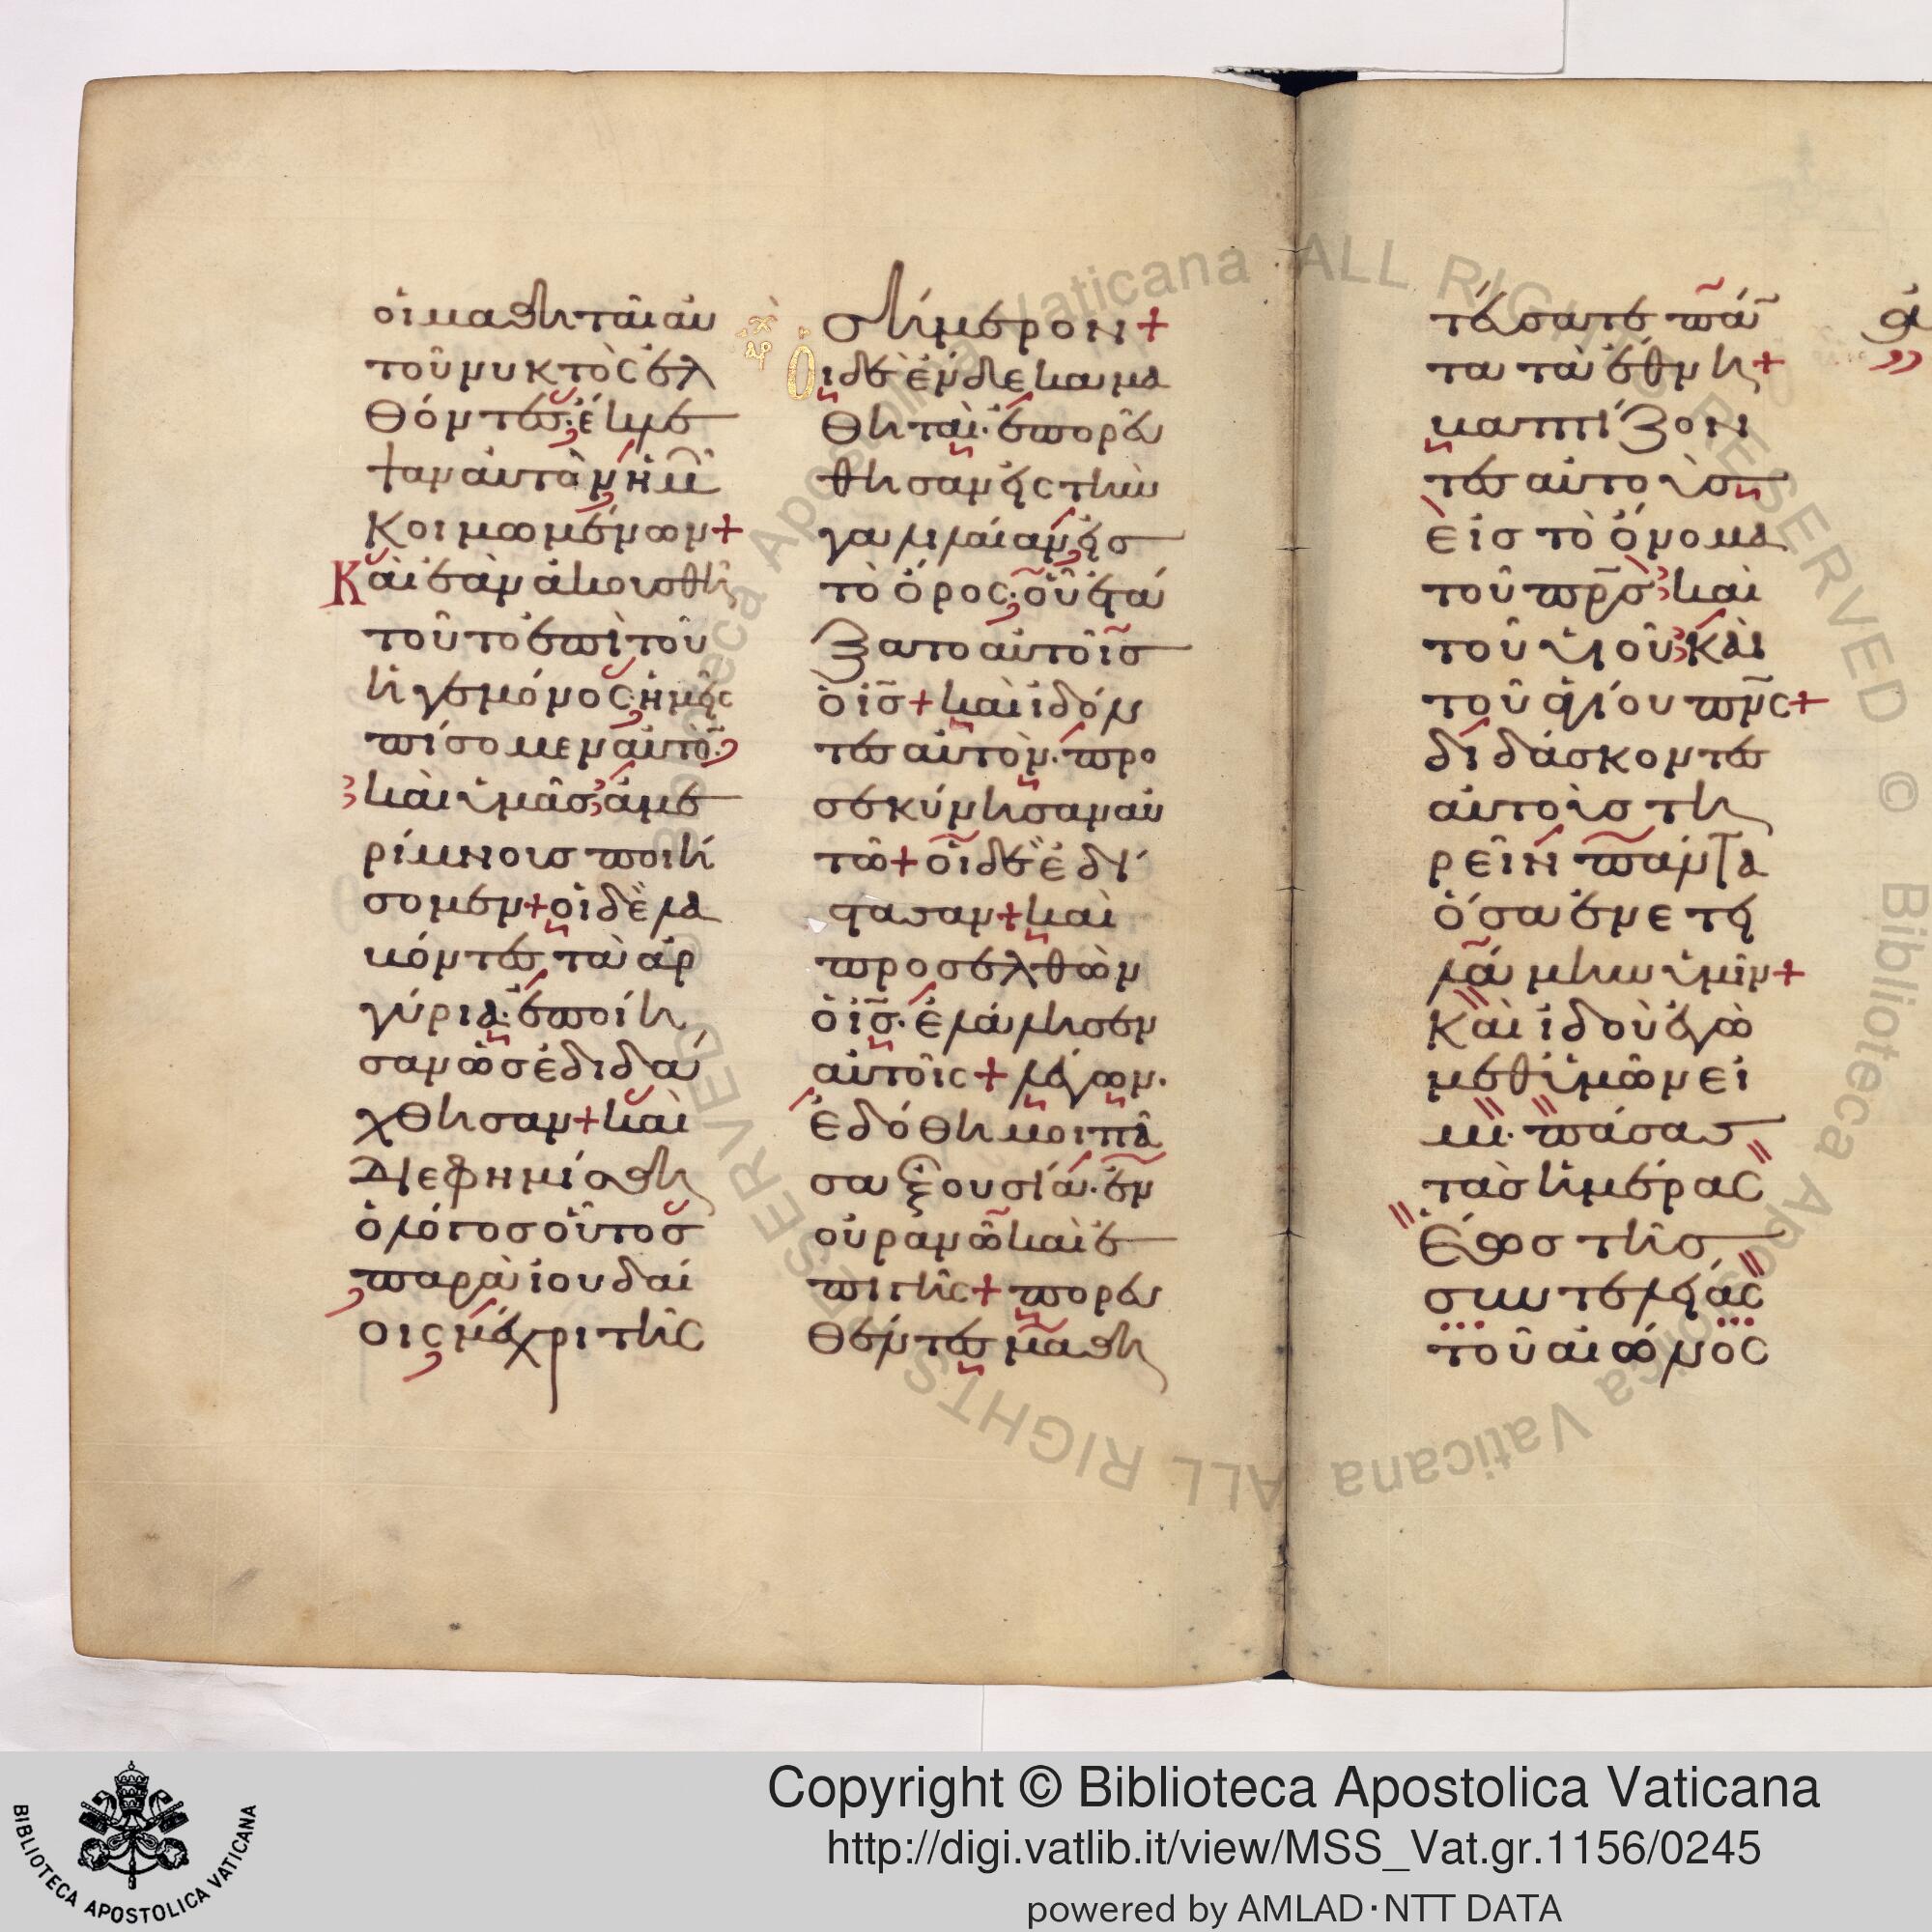 οἱ μαθηταὶ αυ
τοῦ νυκτὸς ἐλ
θόντες· ἔκλε
ψαν αυτὸν ἡμῶ
κοιμωμένων+
Και ἐὰν ἀκουσθῆ
τοῦτο ἐπὶ τοῦ
ἡγεμόνος· ἡμεῖς
πείσομεν αυτὸ·
καὶ ὑμᾶς ἀμε
ρίμνους ποιή
σομεν+ οἱ δὲ λα
βόντες τὰ αρ
γύρια· ἐποίη
σαν ὡς ἐδιδά
χθησαν+ καὶ
διεφημίσθη
ὁ λόγος οὗτος
παρὰ ἰουδαί
οις μέχρι τῆς
σήμερον+
Οἱ δὲ ἕνδεκα μα
θηταὶ· ἐπορεύ
θησαν εἰς τὴν
γαλιλαίαν εἰς
τὸ ὄρος· οὗ ετά
ξατο αυτοῖς
ὁ ις+ καὶ ἰδόν
τες αὐτὸν· προ
σεκύνησαν αυ
τῶ+ οἱ δὲ ἐδί
στασαν+ καὶ
προσελθὼν
ὁ ις· ἐλάλησεν
αυτοῖς+ λέγων·
Ἐδόθη μοι πᾶ
σα ἐξουσία· ἐν
οὐρανῶ καὶ ἐ
πι γῆς+ πορευ
θέντες μαθη
τεύσατε πάν
τα τὰ ἔθνη+
βαπτίζον
τες αὐτοὺς
εἰς τὸ ὄνομα
τοῦ πρς καὶ
τοῦ υἱοῦ καὶ
τοῦ ἁγίου πνς+
διδάσκοντες
αὐτοὺς τη
ρεῖν πάντα
ὅσα ἐνετει
λάμην ὑμῖν+
Καὶ ἰδοὺ ἐγὼ
μεθ ὑμῶν εἰ
μι· πάσας
τὰς ἡμέρας
Ἕως τῆς
συντελείας
τοῦ αἰῶνος
Copyright © Biblioteca Apostolica Vaticana
http://digi.vatlib.it/view/MSS_Vat.gr.1156/0245
powered by AMLAD·NTT DATA
BIBLIOTECA APOSTOLICA VATICANA